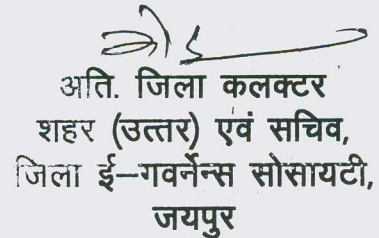 अति. जिला कलक्टर
शहर (उत्तर) एवं सचिव,
जिला ई–गवर्नेन्स सोसायटी,
जयपुर